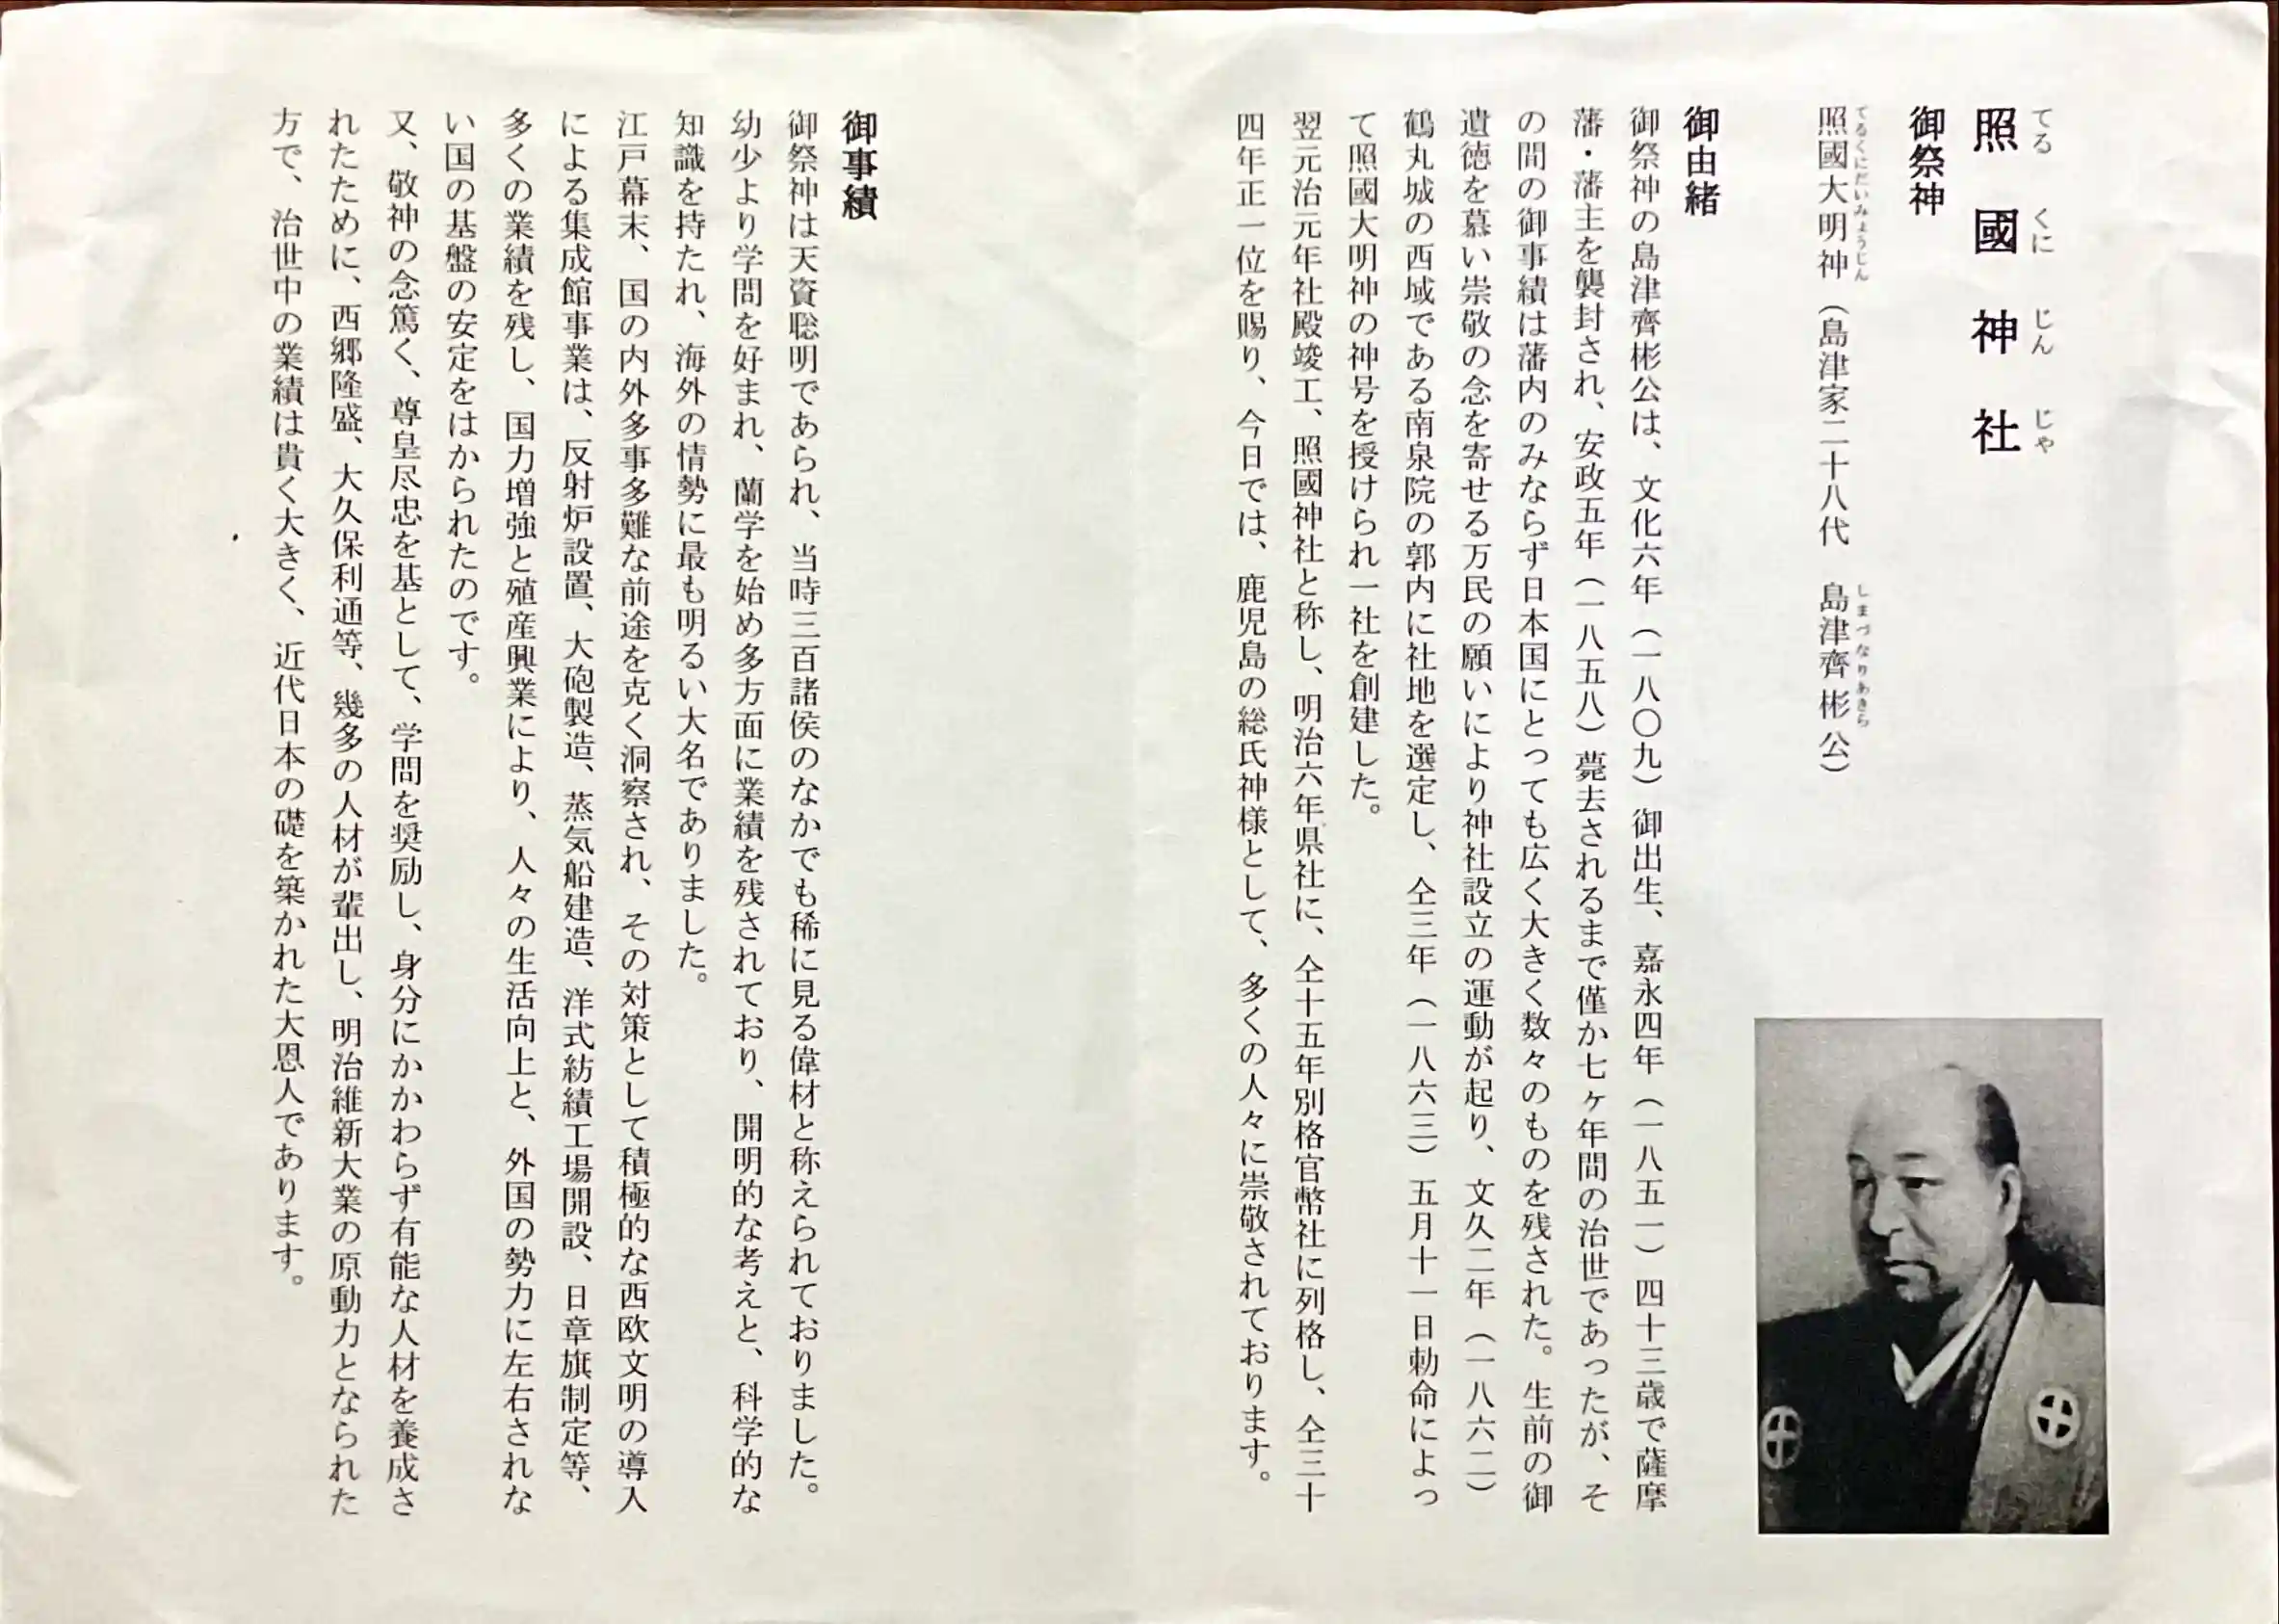 照國神社
てるくにじんじゃ
御祭神
照國大明神（島津家二十八代　島津齊彬公）
てるくにだいみょうじん
しまづなりあきら
御由緒
御祭神の島津齊彬公は、文化六年（一八〇九）御出生、嘉永四年（一八五一）四十三歳で薩摩
藩・藩主を襲封され、安政五年（一八五八）薨去されるまで僅か七ヶ年間の治世であったが、そ
の間の御事績は藩内のみならず日本国にとっても広く大きく数々のものを残された。生前の御
遺徳を慕い崇敬の念を寄せる万民の願いにより神社設立の運動が起り、文久二年（一八六二）
鶴丸城の西域である南泉院の郭内に社地を選定し、仝三年（一八六三）五月十一日勅命によっ
て照國大明神の神号を授けられ一社を創建した。
翌元治元年社殿竣工、照國神社と称し、明治六年県社に、仝十五年別格官幣社に列格し、仝三十
四年正一位を賜り、今日では、鹿児島の総氏神様として、多くの人々に崇敬されております。
御事績
御祭神は天資聡明であられ、当時三百諸侯のなかでも稀に見る偉材と称えられておりました。
幼少より学問を好まれ、蘭学を始め多方面に業績を残されており、開明的な考えと、科学的な
知識を持たれ、海外の情勢に最も明るい大名でありました。
江戸幕末、国の内外多事多難な前途を克く洞察され、その対策として積極的な西欧文明の導入
による集成館事業は、反射炉設置、大砲製造、蒸気船建造、洋式紡績工場開設、日章旗制定等、
多くの業績を残し、国力増強と殖産興業により、人々の生活向上と、外国の勢力に左右されな
い国の基盤の安定をはかられたのです。
又、敬神の念篤く、尊皇尽忠を基として、学問を奨励し、身分にかかわらず有能な人材を養成さ
れたために、西郷隆盛、大久保利通等、幾多の人材が輩出し、明治維新大業の原動力となられた
方で、治世中の業績は貴く大きく、近代日本の礎を築かれた大恩人であります。